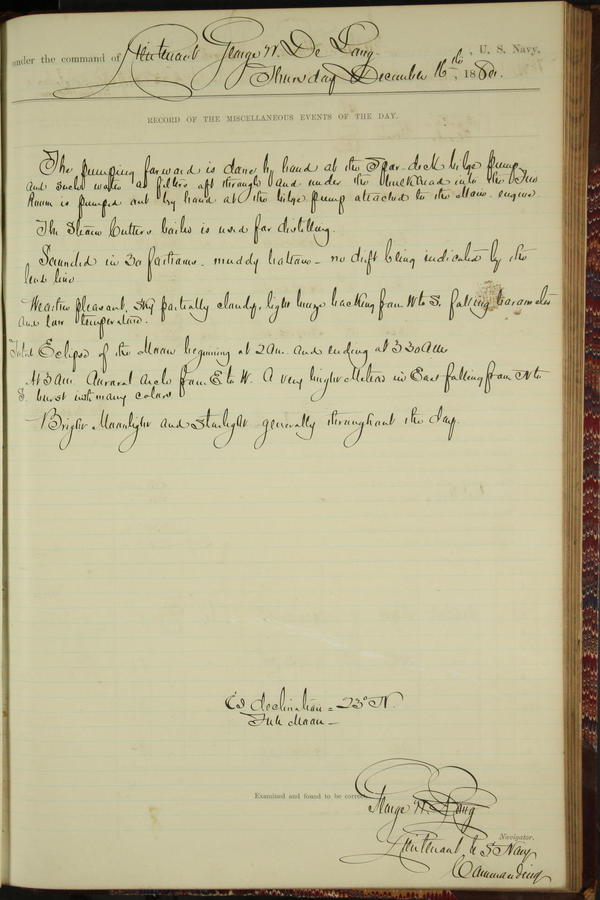 under the command of Lieutenant George W. De Long, U. S. Navy.
Thursday December 16th, 1880.
RECORD OF THE MISCELLANEOUS EVENTS OF THE DAY.
The pumping forward is done by hand at the Spar-deck bilge pump
and such water as filters aft through and under the bulkhead into the Fire
Room is pumped out by hand at the bilge pump attached to the Main engine.
The Steam Cutters boiler is used for distilling.
Sounded in 30 fathoms. muddy bottom - no drift being indicated by the
lead line.
Weather pleasant, sky partially cloudy, light breeze backing from W to S, falling barometer
and low temperature.
Total Eclipse of the Moon beginning at 2 am. and ending at 3 30 AM
At 3 am Auroral arch from E to W. A very bright Meteor in East falling from N to
S. burst with many colors
Bright Moonlight and Starlight generally throughout the day.
declination = 23° N.
Full Moon -
Examined and found to be correct.
George W. De Long
Navigator.
Lieutenant, U S Navy
Commanding